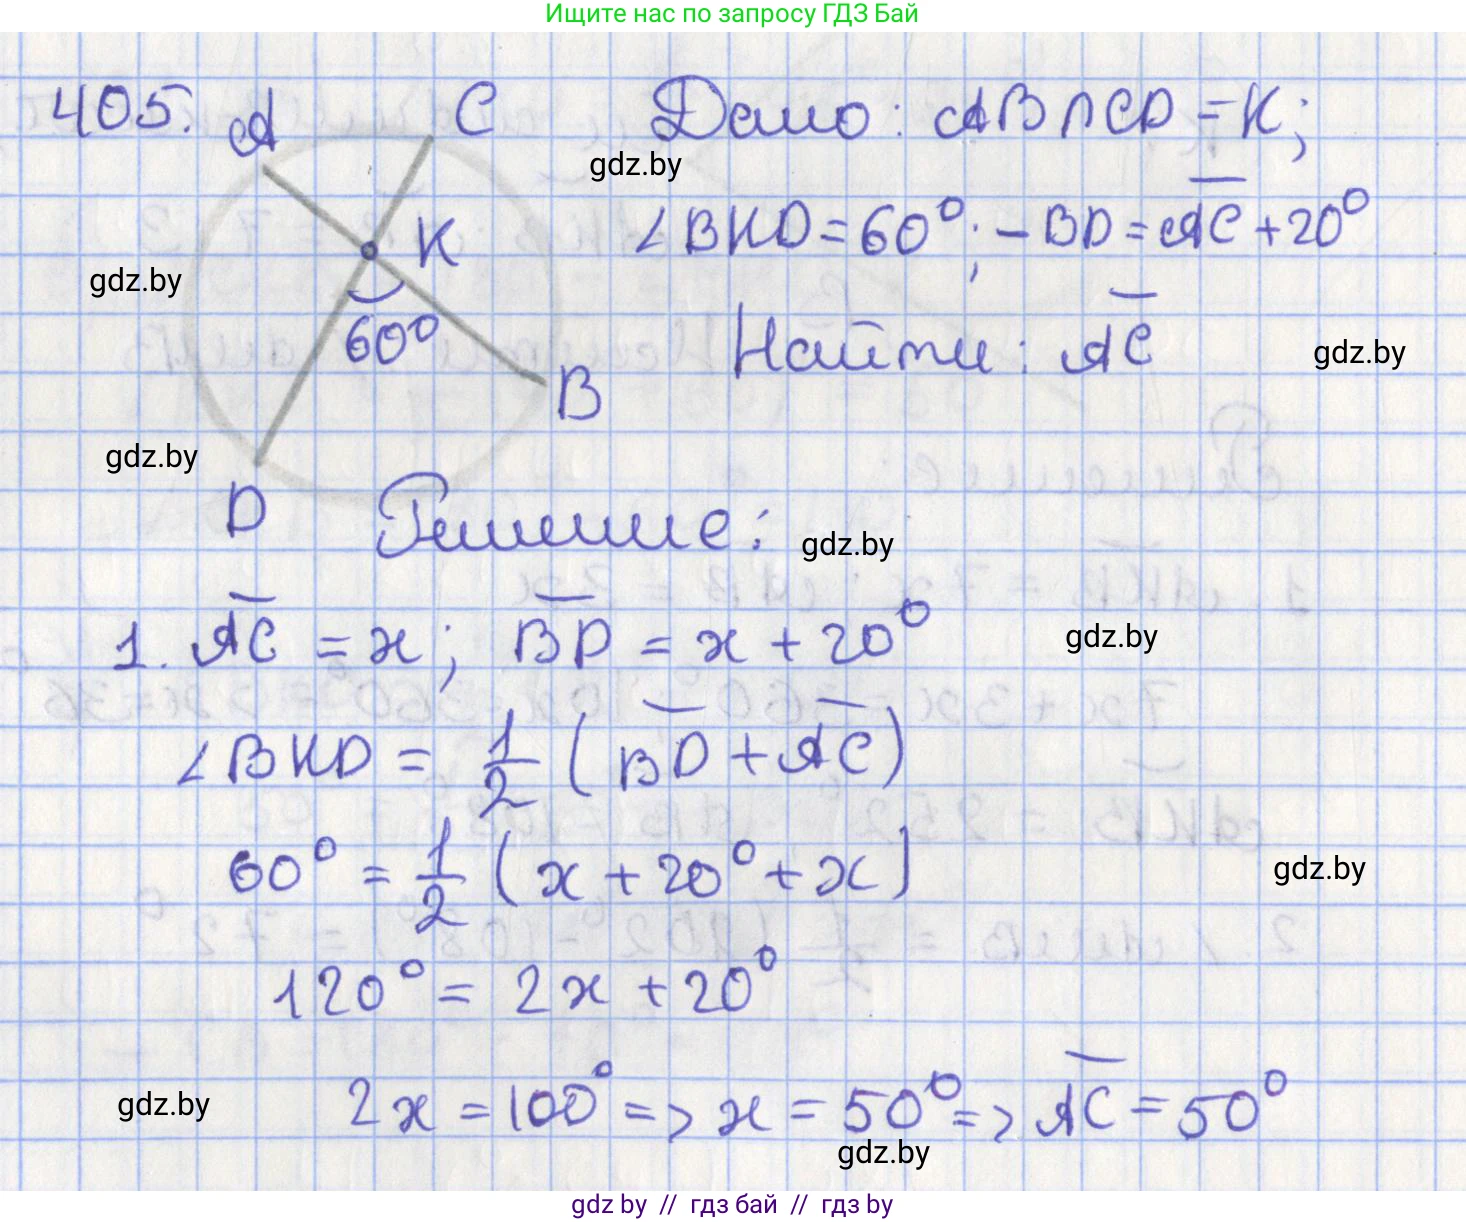 Ищите нас по запросу ГДЗ Бай
405. A C Дано: AB∩CD = K;
gdz.by
K ∠BKD = 60°; ◡BD = ◡AC + 20°
gdz.by
60° Найти: ◡AC
gdz.by
B
gdz.by
D Решение:
gdz.by
1. ◡AC = x; ◡BD = x + 20°
gdz.by
∠BKD = 1/2 (◡BD + ◡AC)
60° = 1/2 (x + 20° + x)
gdz.by
120° = 2x + 20°
2x = 100° => x = 50° => ◡AC = 50°
gdz.by
gdz.by
gdz by // гдз бай // гдз by